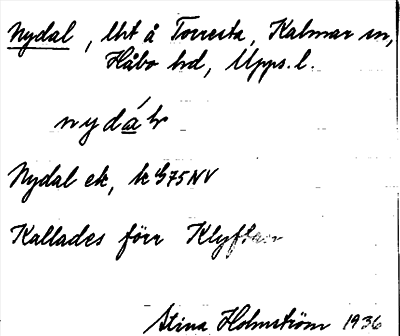 Nydal, lht å Torresta, Kalmar sn,
Håbo hd, Upps. l.
Nydal ek,
Kallades förr Klyftan
Stina Holmström 1936